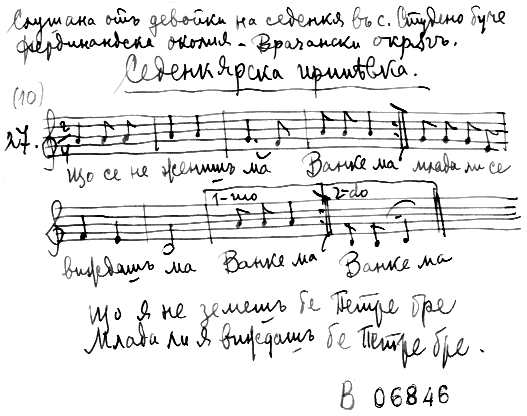 Слушана отъ девойки на седенкя въ с. Студено буче
фердинандска околия - Врачански окрѫгъ.
Седенкярска припѣвка.
(10)
27. 2/4
Що се не женишъ ма Ванке ма млада ли се
1-mo 2-do
виждашъ ма Ванке ма Ванке ма
Що я не земешъ бе Петре бре
Млада ли я виждашъ бе Петре бре.
В 06846